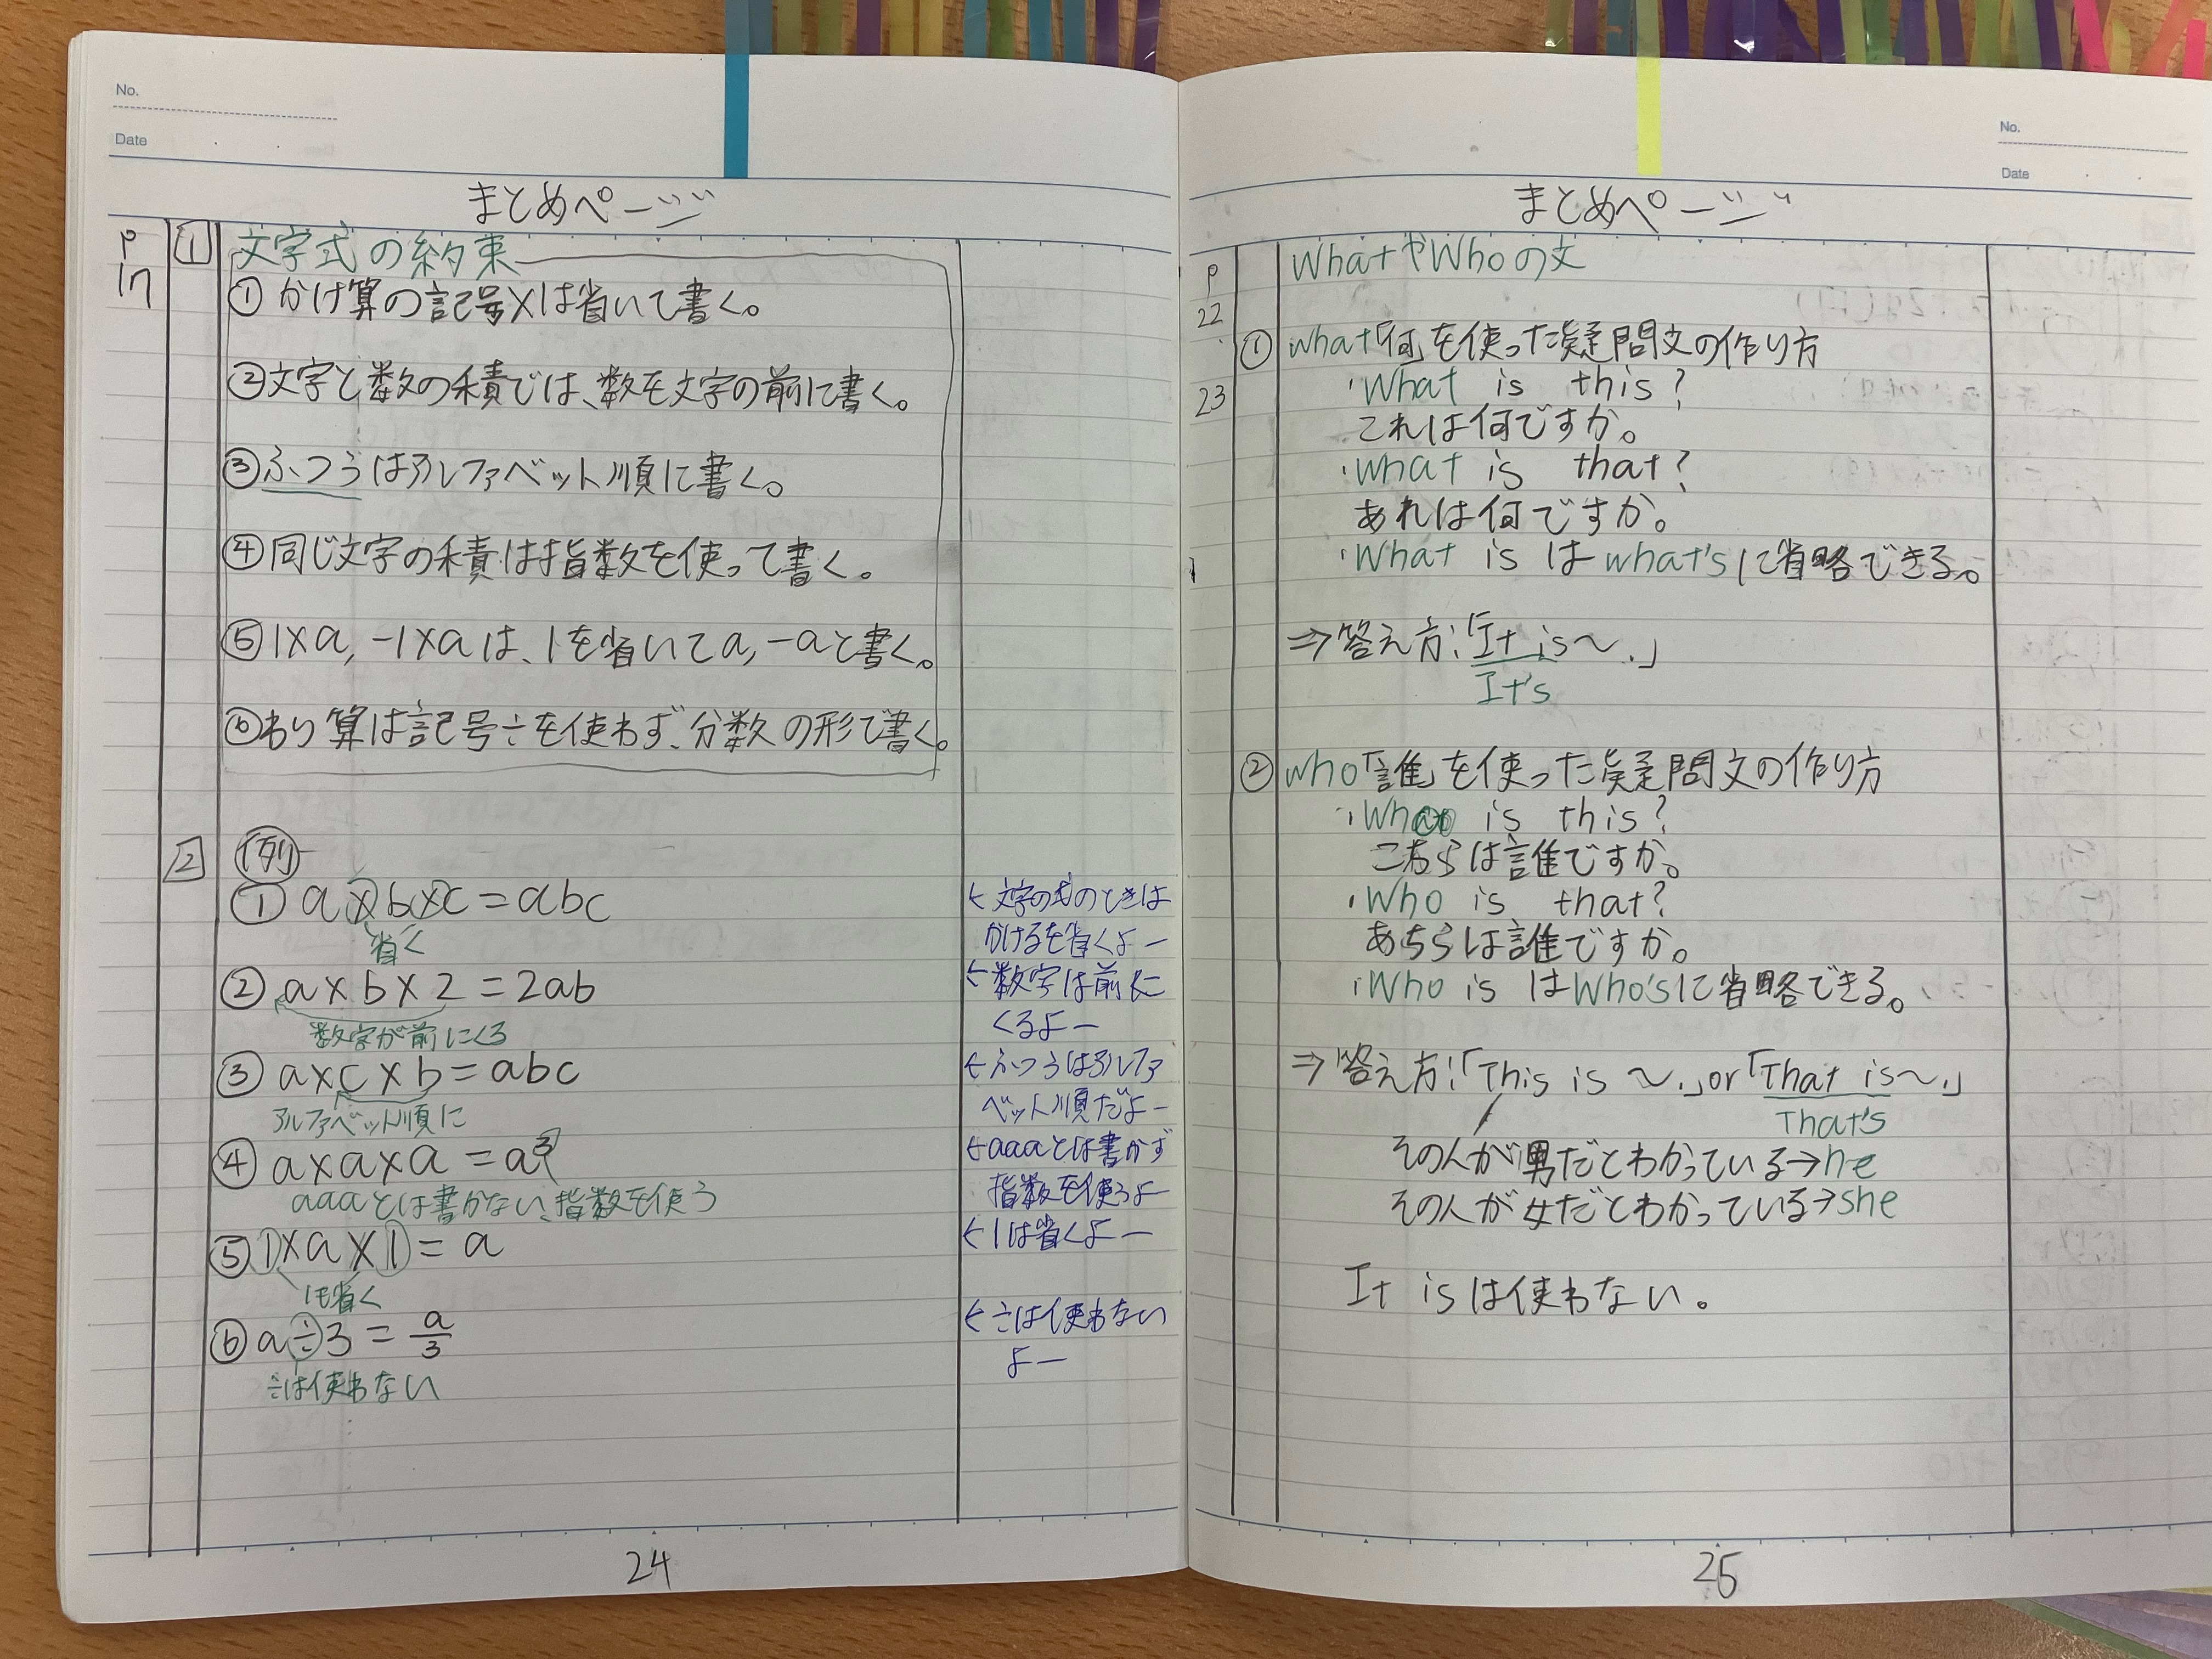 No.
Date
まとめページ
p
17
1 文字式の約束
① かけ算の記号×は省いて書く。
②文字と数の積では、数を文字の前に書く。
③ふつうはアルファベット順に書く。
④同じ文字の積は指数を使って書く。
⑤1×a, -1×aは、1を省いてa, -aと書く。
⑥わり算は記号÷を使わず、分数の形で書く。
2 例
① a×b×c=abc
省く
←文字の式のときは
かけるを省くよー
② a×b×2=2ab
数字が前にくる
←数字は前に
くるよー
③ a×c×b=abc
アルファベット順に
←ふつうはアルファ
ベット順だよー
④ a×a×a=a³
aaaとは書かない、指数を使う
←aaaとは書かず
指数を使うよー
⑤ 1×a×1=a
1も省く
←1は省くよー
⑥ a÷3=a/3
÷は使わない
←÷は使わない
よー
24
No.
Date
まとめページ
p
22
23
WhatやWhoの文
① what「何」を使った疑問文の作り方
・What is this?
これは何ですか。
・what is that?
あれは何ですか。
・What is はwhat'sに省略できる。
⇒答え方:「It is〜.」
It's
② who「誰」を使った疑問文の作り方
・Who is this?
こちらは誰ですか。
・Who is that?
あちらは誰ですか。
・Who is はWho'sに省略できる。
⇒答え方:「This is 〜.」or「That is〜.」
That's
その人が男だとわかっている→he
その人が女だとわかっている→she
It isは使わない。
25